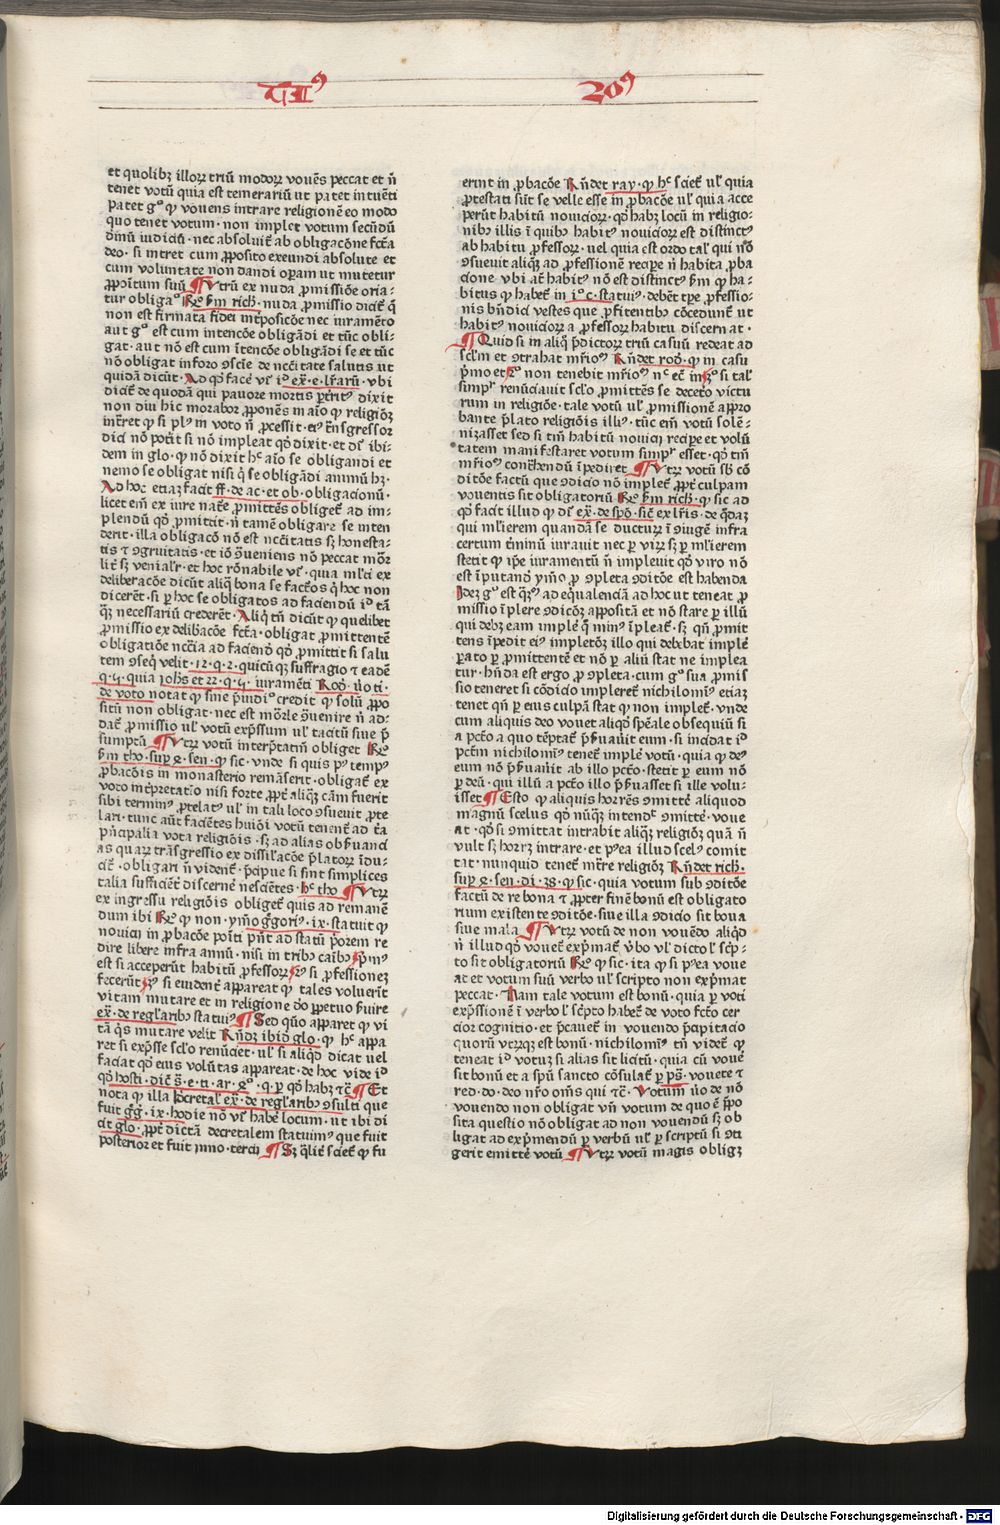 et quolibꝫ illoꝝ triũ modoꝝ vouẽs peccat et ñ
tenet votũ quia est temerariũ ut patet in tuẽti
patet gᵒ ꝙ vouens intrare religionẽ eo modo
quo tenet votum · non implet votum secũdũ
diuinũ iudiciũ · nec absoluit᷑ ab obligacõne fct̃a
deo · si intret cum ꝓposito exeundi absolute et
cum voluntate non dandi oꝑam ut mutetur
ꝓpoĩtum suũ ¶ Vtrũ ex nuda ꝓmissiõe oria-
tur obligaᵒ Rͤ ẜm rich · nuda ꝓmissio dicit᷑ q̃
non est firmata fidei int̃posicõe nec iuramẽto
aut gᵒ est cum intencõe obligãdi et tũc obli-
gat · aut nõ est cum ĩtencõe obligãdi se et tũc
nõ obligat in foro ꝯscĩe de nccĩtate salutis ut
quidã dicũt · Ad qᵒ facẽ vr̃ iᵒ ex̃ · e · lr̃arũ · vbi
dicit᷑ de quodã qui pauore mortis ꝑtrit᷒ dixit
non diu hic morabor ꝓponẽs in aĩo ꝙ religiõꝫ
intret ꝙ si pl᷒ in voto ñ ꝓcessit · ei᷒ t̃nsgressor
dici nõ potit̃ si nõ impleat qᵒ dixit · et dr̃ ibi-
dem in glo · ꝙ nõ dixit hͨ aĩo se obligandi et
nemo se obligat nisi q̃ se obligãdi animũ hꝫ ·
Ad hoc etiaꝫ facit ff · de ac · et ob · obligacionũ ·
licet em̃ ex iure nat̃e ꝓmittẽs obliget᷑ ad im-
plendũ qᵒ ꝓmittit · ñ tamẽ obligare se inten
derit · illa obligacõ nõ est nccĩtatis sꝫ honesta-
tis ⁊ ꝯgruitatis · et iõ ꝯueniens nõ peccat mõr
lit̃ sꝫ venialr̃ · et hoc rõnabile vr̃ · quia ml̃ti ex
deliberacõe dicũt aliq̃ bona se fact̃os q̃ hoc non
dicerẽt · si ꝑ hoc se obligatos ad faciendũ iᵒ tã
q̃ꝫ necessariũ crederẽt · Aliq̃ tñ dicũt ꝙ quelibet
ꝓmissio ex delib̃acõe fct̃a · obligat ꝓmittentẽ
obligatiõe nccĩa ad faciendᵒ qᵒ ꝓmittit si salu
tem ꝯseq̃ velit · 12 · q · 2 · quicũqꝫ suffragio ⁊ eadẽ
q · ij · quia ioh̃es et 22 · q · ij · iuramẽti Rod · ño ti ·
de voto notat ꝙ sine ꝑuidiᵒ credit ꝙ solũ ꝓpo
sitũ non obligat · nec est mõrle ꝯuenire ñ ad-
dat᷑ ꝓmissio ul᷑ votũ exp̃ssum ul᷑ tacitũ siue p̃
sumptũ ¶ Vtꝝ votũ interp̃tatiũ obliget Rͤ
ẜm tho · suꝑ 4 · sen · ꝙ sic · vnde si quis p᷒ temp᷒
ꝓbacõis in monasterio remãserit · obligat᷑ ex
voto int̃pretatio nisi forte ꝓpt̃ aliq̃ꝫ cãm fuerit
sibi termin᷒ ꝓtelat᷒ ul᷑ in tali loco ꝯsueuit ꝓte
lari · tunc aut̃ faciẽtes huiõi votũ tenent᷑ ad t̃ia
p̃ncipalia vota religiõis · sꝫ ad alias obẜuanci
as quaꝝ trãsgressio ex dissil̃acõe p̃latoꝝ ĩdu-
cit᷑ · obligari ñ vident᷑ · p̃cipue si sint simplices
talia sufficiẽt̃ discernẽ nesciẽtes · hͨ tho ¶ Vtꝝ
ex ingressu religiõis obliget᷑ quis ad remanẽ
dum ibi Rͤ ꝙ non · ymo g̃gori᷒ · ix · statuit ꝙ
nouicij in ꝓbacõe poĩti p̃nt ad statũ p̃orem re
dire libere infra annũ · nisi in tribꝰ caibꝰ p̃m᷒
est si acceperũt habitũ ꝓfessoꝝ 2᷒ si ꝓfessionez
fecerũt 3᷒ si euident̃ appareat ꝙ tales voluerĩt
vitam mutare et in religione dõ ꝑpetuo ẜuire
ex̃ · de regl̃aribꝰ statui᷒ ¶ Sed quõ apparet ꝙ vi
tã q̃s mutare velit Rñdꝫ ibiᵒ glo · ꝙ hͨ appa
ret si exp̃sse sclo̅ renũciet · ul᷑ si aliqᵒ dicat vel
faciat qᵒ eius volũtas appareat · de hoc vide iᵒ
qᵒ hosti · dic̃ s̃ · e · ti · ar · gᵒ · q · ꝑ qᵒ habꝫ ⁊c̃ ¶ Et
nota ꝙ illa decretal᷑ ex̃ · de regl̃aribꝰ ꝯsulti que
fuit g̃g · ix · hodie nõ vr̃ habẽ locum · ut ibi di
cit glo · ꝓpt̃ dict̃ã decretalem statuim᷒ que fuit
posterior et fuit ĩnno · tercij ¶ Sꝫ q̃lit̃ sciet᷑ ꝙ fu
erint in ꝓbacõe Rñdet ray · ꝙ hͨ sciet᷑ ul᷑ quia
ꝓtestati sũt se velle esse in ꝓbacõe ul᷑ quia acce
perũt habitũ nouicioꝝ · qᵒ habꝫ locũ in religio-
nibꝰ illis ĩ quibꝰ habit᷒ nouicioꝝ est distinct᷒
ab habitu ꝓfessoꝝ · uel quia est ordo tal᷑ qui nõ
ꝯsueuit aliq̃ꝫ ad ꝓfessionẽ recipe ñ habita ꝓba
cione vbi aut̃ habit᷒ nõ est distinct᷒ ẜm ꝙ ha-
bitus ꝙ habet᷑ in iᵒ c · statui᷒ · debẽt tp̃e ꝓfessio-
nis bñdici vestes que ꝓfitentibꝰ cõcedunt᷑ ut
habit᷒ nouicioꝝ a ꝓfessoꝝ habitu discernat᷑ ·
¶ Quid si in aliq̃ p̃dictoꝝ triũ casuũ redeat ad
sclm̃ et ꝯtrahat mr̃ioᷤ Rñdet rod · ꝙ in casu
p̃mo et 2ᵒ non tenebit mr̃ioᷤ nͨ ec̃ in 3ᵒ si tal᷑
simpl᷑ renũciauit sclo̅ ꝓmittẽs se decet̃o victu
rum in religiõe · tale votũ ul᷑ ꝓmissionẽ appro
bante p̃lato religiõis illi᷒ · tũc em̃ votũ solẽ-
nizasset sed si tm̃ habitũ nouicij recipet et volũ
tatem manifestaret votum simpl᷑ esset · qᵒ tm̃
mr̃ioᷤ cont̃hendũ ĩpediret ¶ Vtꝝ votũ sb̃ cõ
ditõe factũ que ꝯdicio nõ implet᷑ ꝓpt̃ culpam
vouentis sit obligatoriũ Rͤ ẜm rich · ꝙ sic ad
qᵒ facit illud ꝙ dr̃ ex̃ · de spõ · sic̃ ex lr̃is · de q̃daꝫ
qui ml̃ierem quandã se ducturꝫ ĩ ꝯiugẽ infra
certum t̃minũ iurauit nec ꝑ virꝫ sꝫ ꝑ ml̃ierem
stetit ꝙ ip̃e iuramentũ ñ impleuit qᵒ viro nõ
est ĩputandᵒ ymo ꝓ ꝯpleta ꝯditõe est habenda
Idez gᵒ est q̃ꝫtᵒ ad equalenciã ad hoc ut teneat᷑ ꝓ
missio ĩplere ꝯdicõꝫ appositã et nõ stare ꝑ illũ
qui debꝫ eam implẽ q̃ min᷒ ĩpleat᷑ · sꝫ qñ ꝓmit
tens ĩpedit ei᷒ impletõꝫ illo qui debebat implẽ
ꝑato ꝑ ꝓmittentẽ et nõ ꝑ aliũ stat ne implea
tur · hñda est ergo ꝓ ꝯpleta · cum gᵒ sua ꝓmis
sio teneret si cõdicio impleret᷑ nichilomi᷒ etiaꝫ
tenet qñ ꝑ eius culpã stat ꝙ non implet᷑ · vnde
cum aliquis deo vouet aliqᵒ sp̃eale obsequiũ si
a pctõ a quo tẽptat᷑ p̃ẜuauit eum · si incidat iᵒ
pctm̃ nichilomi᷒ tenet᷑ implẽ votũ · quia ꝙ de᷒
eum nõ p̃ẜuauit ab illo pctõ · stetit ꝑ eum nõ
ꝑ deũ · qui illũ a pctõ illo p̃ẜuasset si ille volu-
isset ¶ Esto ꝙ aliquis horrẽs ꝯmittẽ aliquod
magnũ scelus qᵒ nũq̃ꝫ intendit᷑ ꝯmittẽ · voue
at · qᵒ si ꝯmittat intrabit aliq̃ꝫ religiõꝫ quã ñ
vult sꝫ horrꝫ intrare · et p᷒ea illud scel᷒ comit
tat · nunquid tenet᷑ int̃re religiõꝫ Rñdet rich ·
suꝑ 4 · sen · di · 38 · ꝙ sic · quia votum sub ꝯditõe
factũ de re bona ⁊ ꝓpter finẽ bonũ est obligato
rium existente ꝯditõe · siue illa ꝯdicio sit bona
siue mala ¶ Vtꝝ votũ de non vouẽdo aliqᵒ
ñ illud qᵒ vouet᷑ exp̃mat᷑ v̾bo ul᷑ dicto l᷑ sc̃p-
to sit obligatoriũ Rͤ ꝙ sic · ita ꝙ si p᷒ea voue
at et votum suũ verbo ul᷑ scripto non exp̃mat
peccat · Nam tale votum est bonũ · quia ꝑ voti
exp̃ssionẽ ĩ verbo l᷑ sc̃pto habet᷑ de voto fct̃o cer
cior cognitio · et p̃cauet᷑ in vouendo p̃cipitacio
quoꝝ vtꝝqꝫ est bonũ · nichilomi᷒ tñ videt᷑ ꝙ
teneat iᵒ votuꝫ si alias sit licitũ · quia cũ vouẽ
sit bonũ et a spũ sancto cõsulat᷑ ꝑ ps̃ · vouete ⁊
red · do · deo nr̃o om̃s qui ⁊c̃ · Votum ũo de nõ
vouendo non obligat vñ votum de quo ẽ p̃po
sita questio nõ obligat ad non vouendũ sꝫ ob
ligat ad exp̃mendũ ꝑ verbũ ul᷑ ꝑ scriptũ si ꝯti
gerit emittẽ votũ ¶ Vtꝝ votũ magis obligꝫ
Digitalisierung gefördert durch die Deutsche Forschungsgemeinschaft - DFG